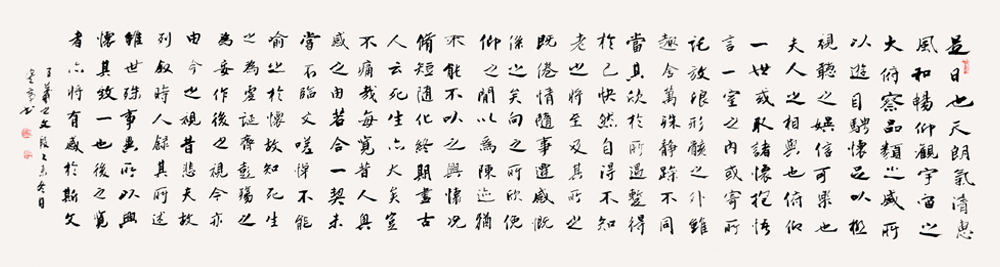 是日也天朗氣清惠
風和暢仰觀宇宙之
大俯察品類之盛所
以遊目騁懷足以極
視聽之娛信可樂也
夫人之相與也俯仰
一世或取諸懷抱悟
言一室之內或寄所
託放浪形骸之外雖
趣舍萬殊靜躁不同
當其欣於所遇暫得
於己快然自得不知
老之將至及其所之
既倦情隨事遷感慨
係之矣向之所欣俛
仰之間以為陳迹猶
不能不以之興懷況
脩短隨化終期盡古
人云死生亦大矣豈
不痛哉每覽昔人興
感之由若合一契未
嘗不臨文嗟悼不能
喻之於懷故知死生
之為虛誕齊彭殤之
為妄作後之視今亦
由今之視昔悲夫故
列敘時人錄其所述
雖世殊事異所以興
懷其致一也後之覽
者亦將有感於斯文
王羲之文段乙未冬月
書